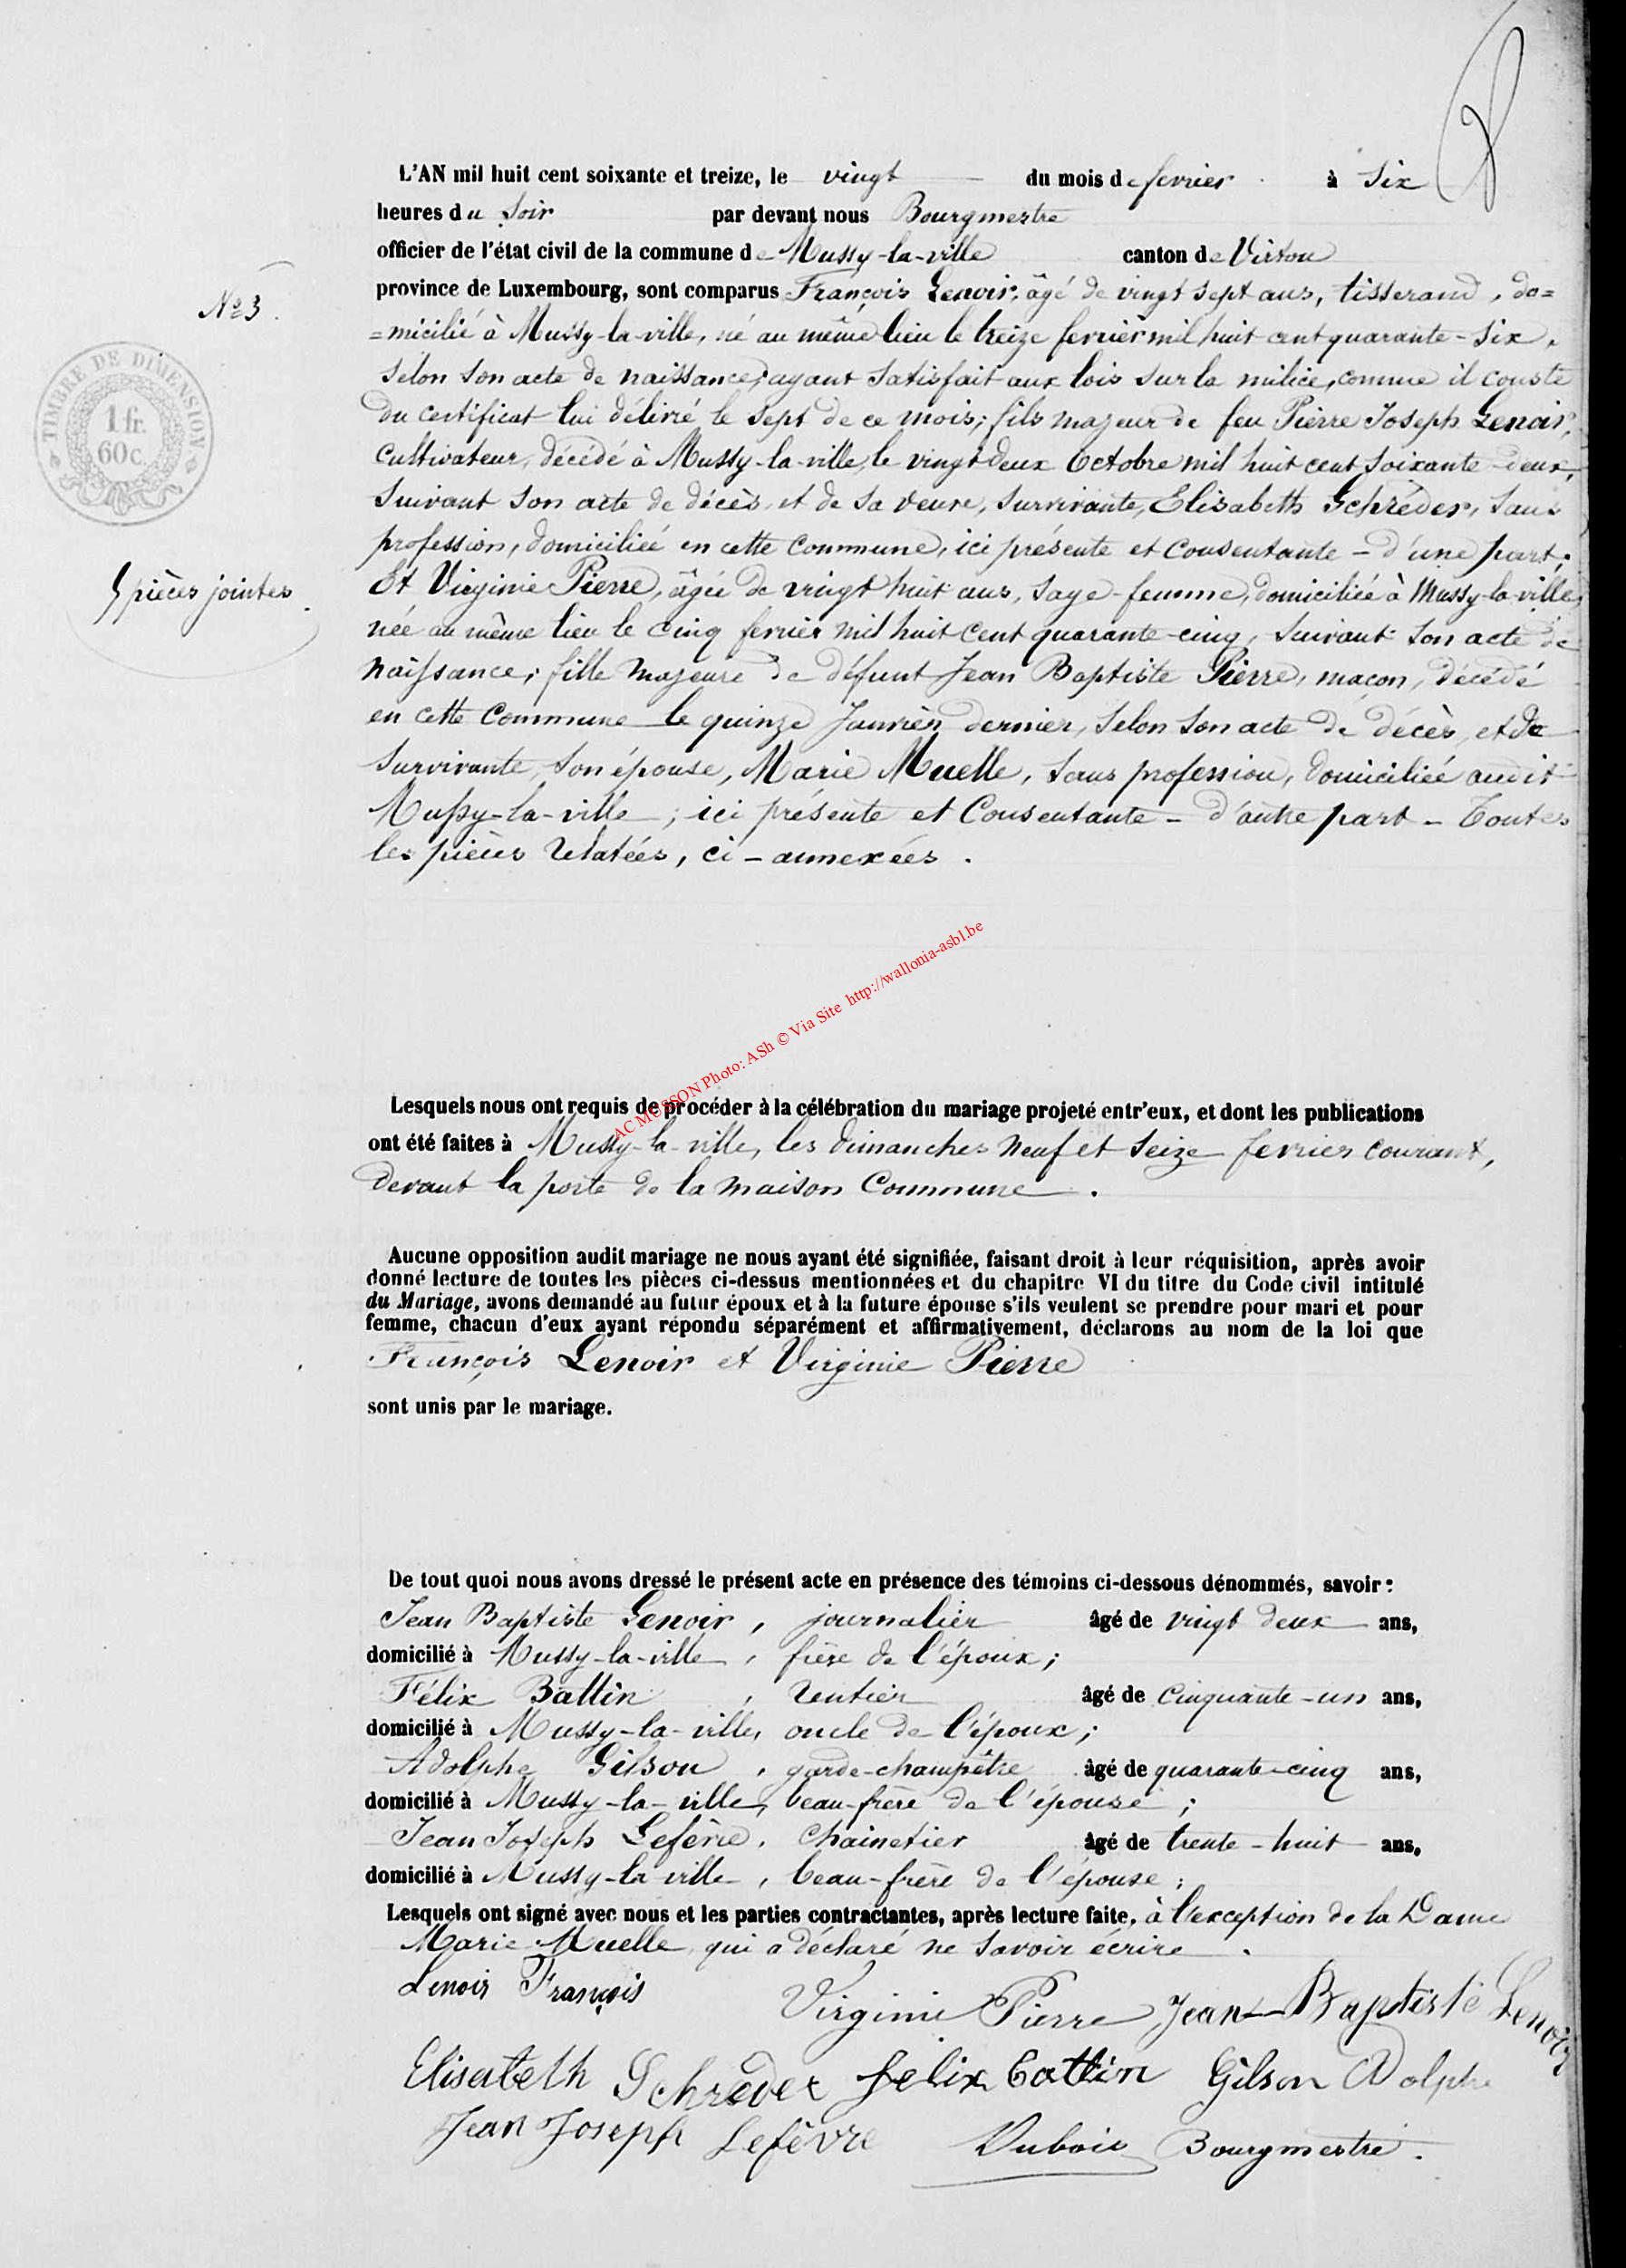 L'AN mil huit cent soixante et treize, le vingt du mois de fevrier à six
heures du Soir par devant nous Bourgmestre
officier de l'état civil de la commune de Mussy-la-ville canton de Virton
province de Luxembourg, sont comparus François Lenoir, âgé de vingt sept ans, tisserand, do=
N° 3.
=micilié à Mussy-la-ville, né au même lieu le treize fevrier mil huit cent quarante-six,
selon son acte de naissance; ayant satisfait aux lois sur la milice, comme il conste
TIMBRE DE DIMENSION
1 fr.
60 c.
du certificat lui délivré le sept de ce mois; fils majeur de feu Pierre Joseph Lenoir,
cultivateur, décédé à Mussy-la-ville, le vingt deux Octobre mil huit cent soixante-deux,
suivant son acte de décès, et de sa veuve, survivante, Elisabeth Schréder, sans
profession, domiciliée en cette commune, ici présente et consentante - d'une part;
5 pièces jointes
Et Virginie Pierre, âgée de vingt huit ans, sage-femme, domiciliée à Mussy-la-ville,
née au même lieu le cinq fevrier mil huit cent quarante-cinq, suivant son acte de
naissance; fille majeure de défunt Jean Baptiste Pierre, maçon, décédé
en cette Commune le quinze Janvier dernier, selon son acte de décès, et de
survivante, son épouse, Marie Muelle, sans profession, domiciliée audit
Mussy-la-ville; ici présente et Consentante - d'autre part - Toutes
les pièces relatées, ci-annexées.
AC MUSSON Photo: ASh © Via Site http://wallonia-asbl.be
Lesquels nous ont requis de procéder à la célébration du mariage projeté entr'eux, et dont les publications
ont été faites à Mussy-la-ville, les dimanches neuf et seize fevrier courant,
devant la porte de la maison Commune.
Aucune opposition audit mariage ne nous ayant été signifiée, faisant droit à leur réquisition, après avoir
donné lecture de toutes les pièces ci-dessus mentionnées et du chapitre VI du titre du Code civil intitulé
du Mariage, avons demandé au futur époux et à la future épouse s'ils veulent se prendre pour mari et pour
femme, chacun d'eux ayant répondu séparément et affirmativement, déclarons au nom de la loi que
François Lenoir et Virginie Pierre
sont unis par le mariage.
De tout quoi nous avons dressé le présent acte en présence des témoins ci-dessous dénommés, savoir:
Jean Baptiste Lenoir, journalier âgé de vingt deux ans,
domicilié à Mussy-la-ville, frère de l'époux;
Félix Battin, rentier âgé de cinquante-un ans,
domicilié à Mussy-la-ville, oncle de l'époux;
Adolphe Gilson, garde-champêtre âgé de quarante-cinq ans,
domicilié à Mussy-la-ville, beau-frère de l'épouse;
Jean Joseph Lefèvre, Chainetier âgé de trente-huit ans,
domicilié à Mussy-la-ville, beau-frère de l'épouse;
Lesquels ont signé avec nous et les parties contractantes, après lecture faite, à l'exception de la Dame
Marie Muelle, qui a déclaré ne savoir écrire.
Lenoir François Virginie Pierre Jean-Baptiste Lenoir
Elisabeth Schreder felix battin Gilson Adolphe
Jean Joseph Lefèvre Dubois Bourgmestre.